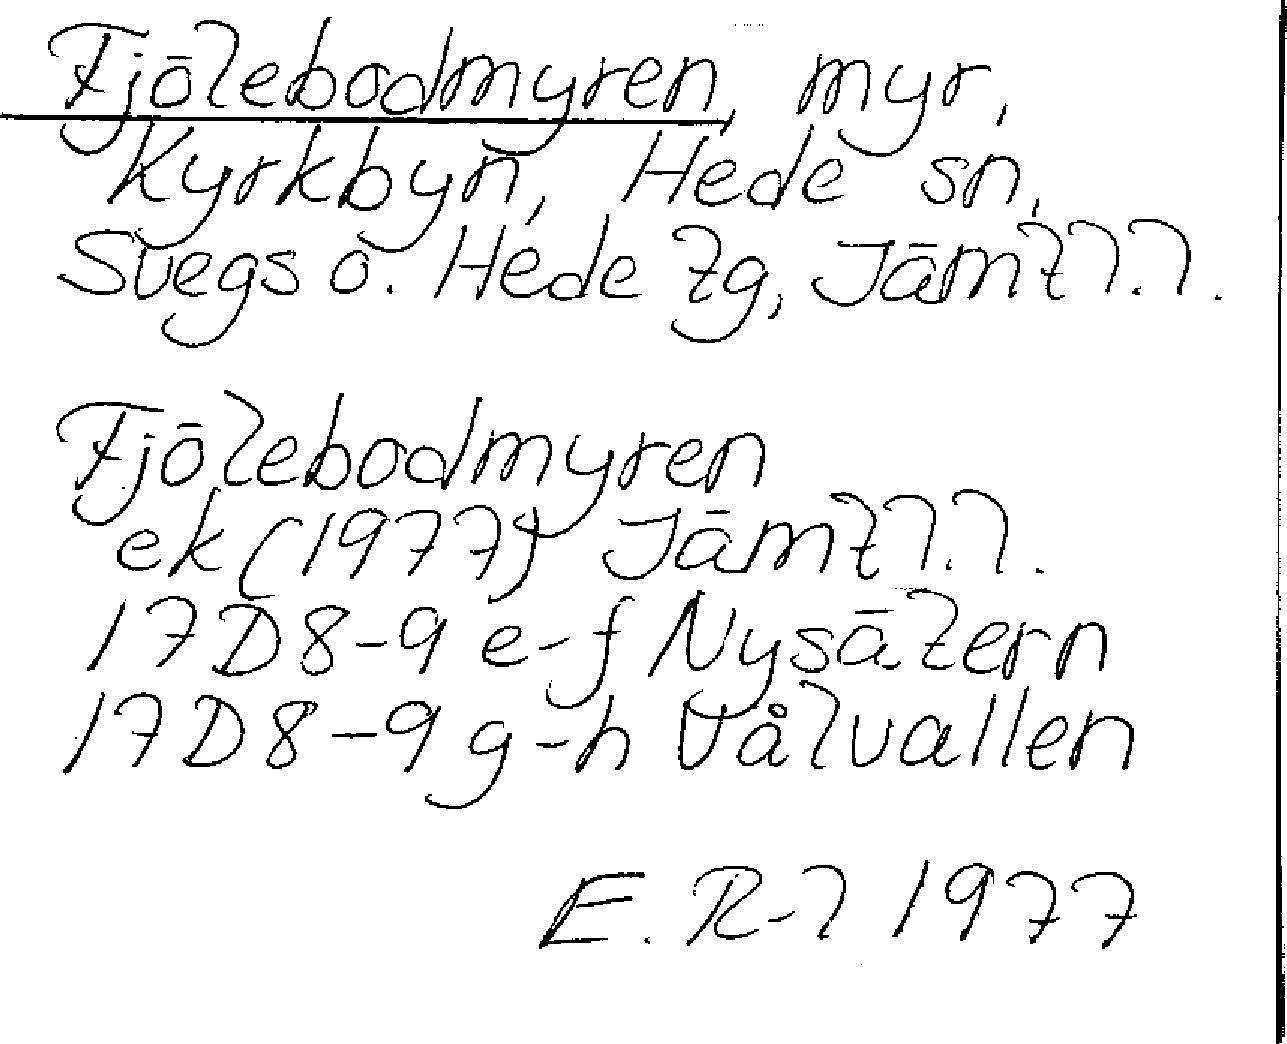 Fjölebodmyren, myr,
Kyrkbyn, Hede sn,
Svegs o. Hede tg, Jämtl.l.
Fjölebodmyren
ek (1977) Jämtl.l.
17D8-9 e-f Nysätern
17D8-9 g-h Vålvallen
E. R-l 1977